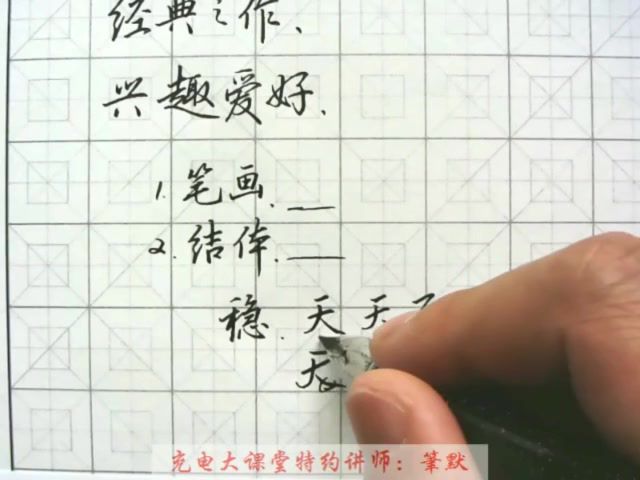 经典之作、
兴趣爱好.
1. 笔画.
2. 结体.
稳. 天 天
天
充电大课堂特约讲师：筆默